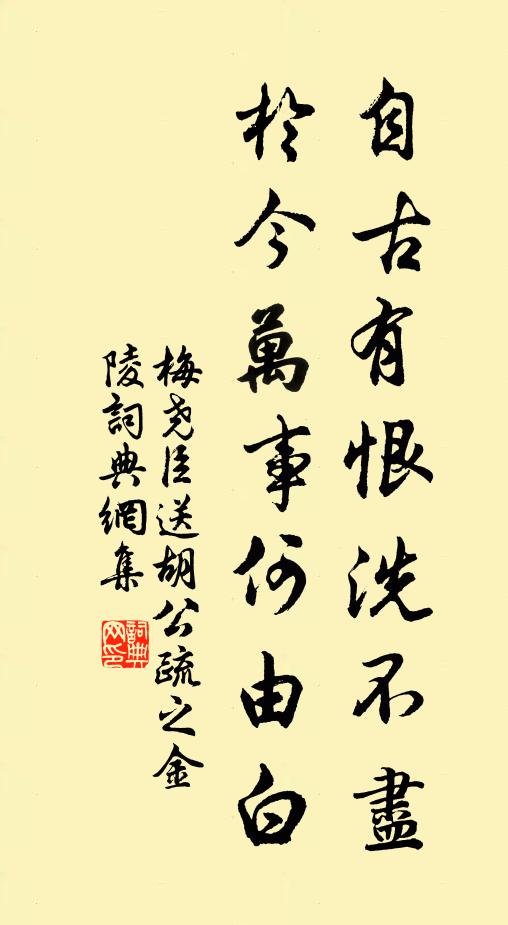 自古有恨洗不盡
於今萬事何由白
梅堯臣送胡公疏之金
陵詞典網集
詞典
网印